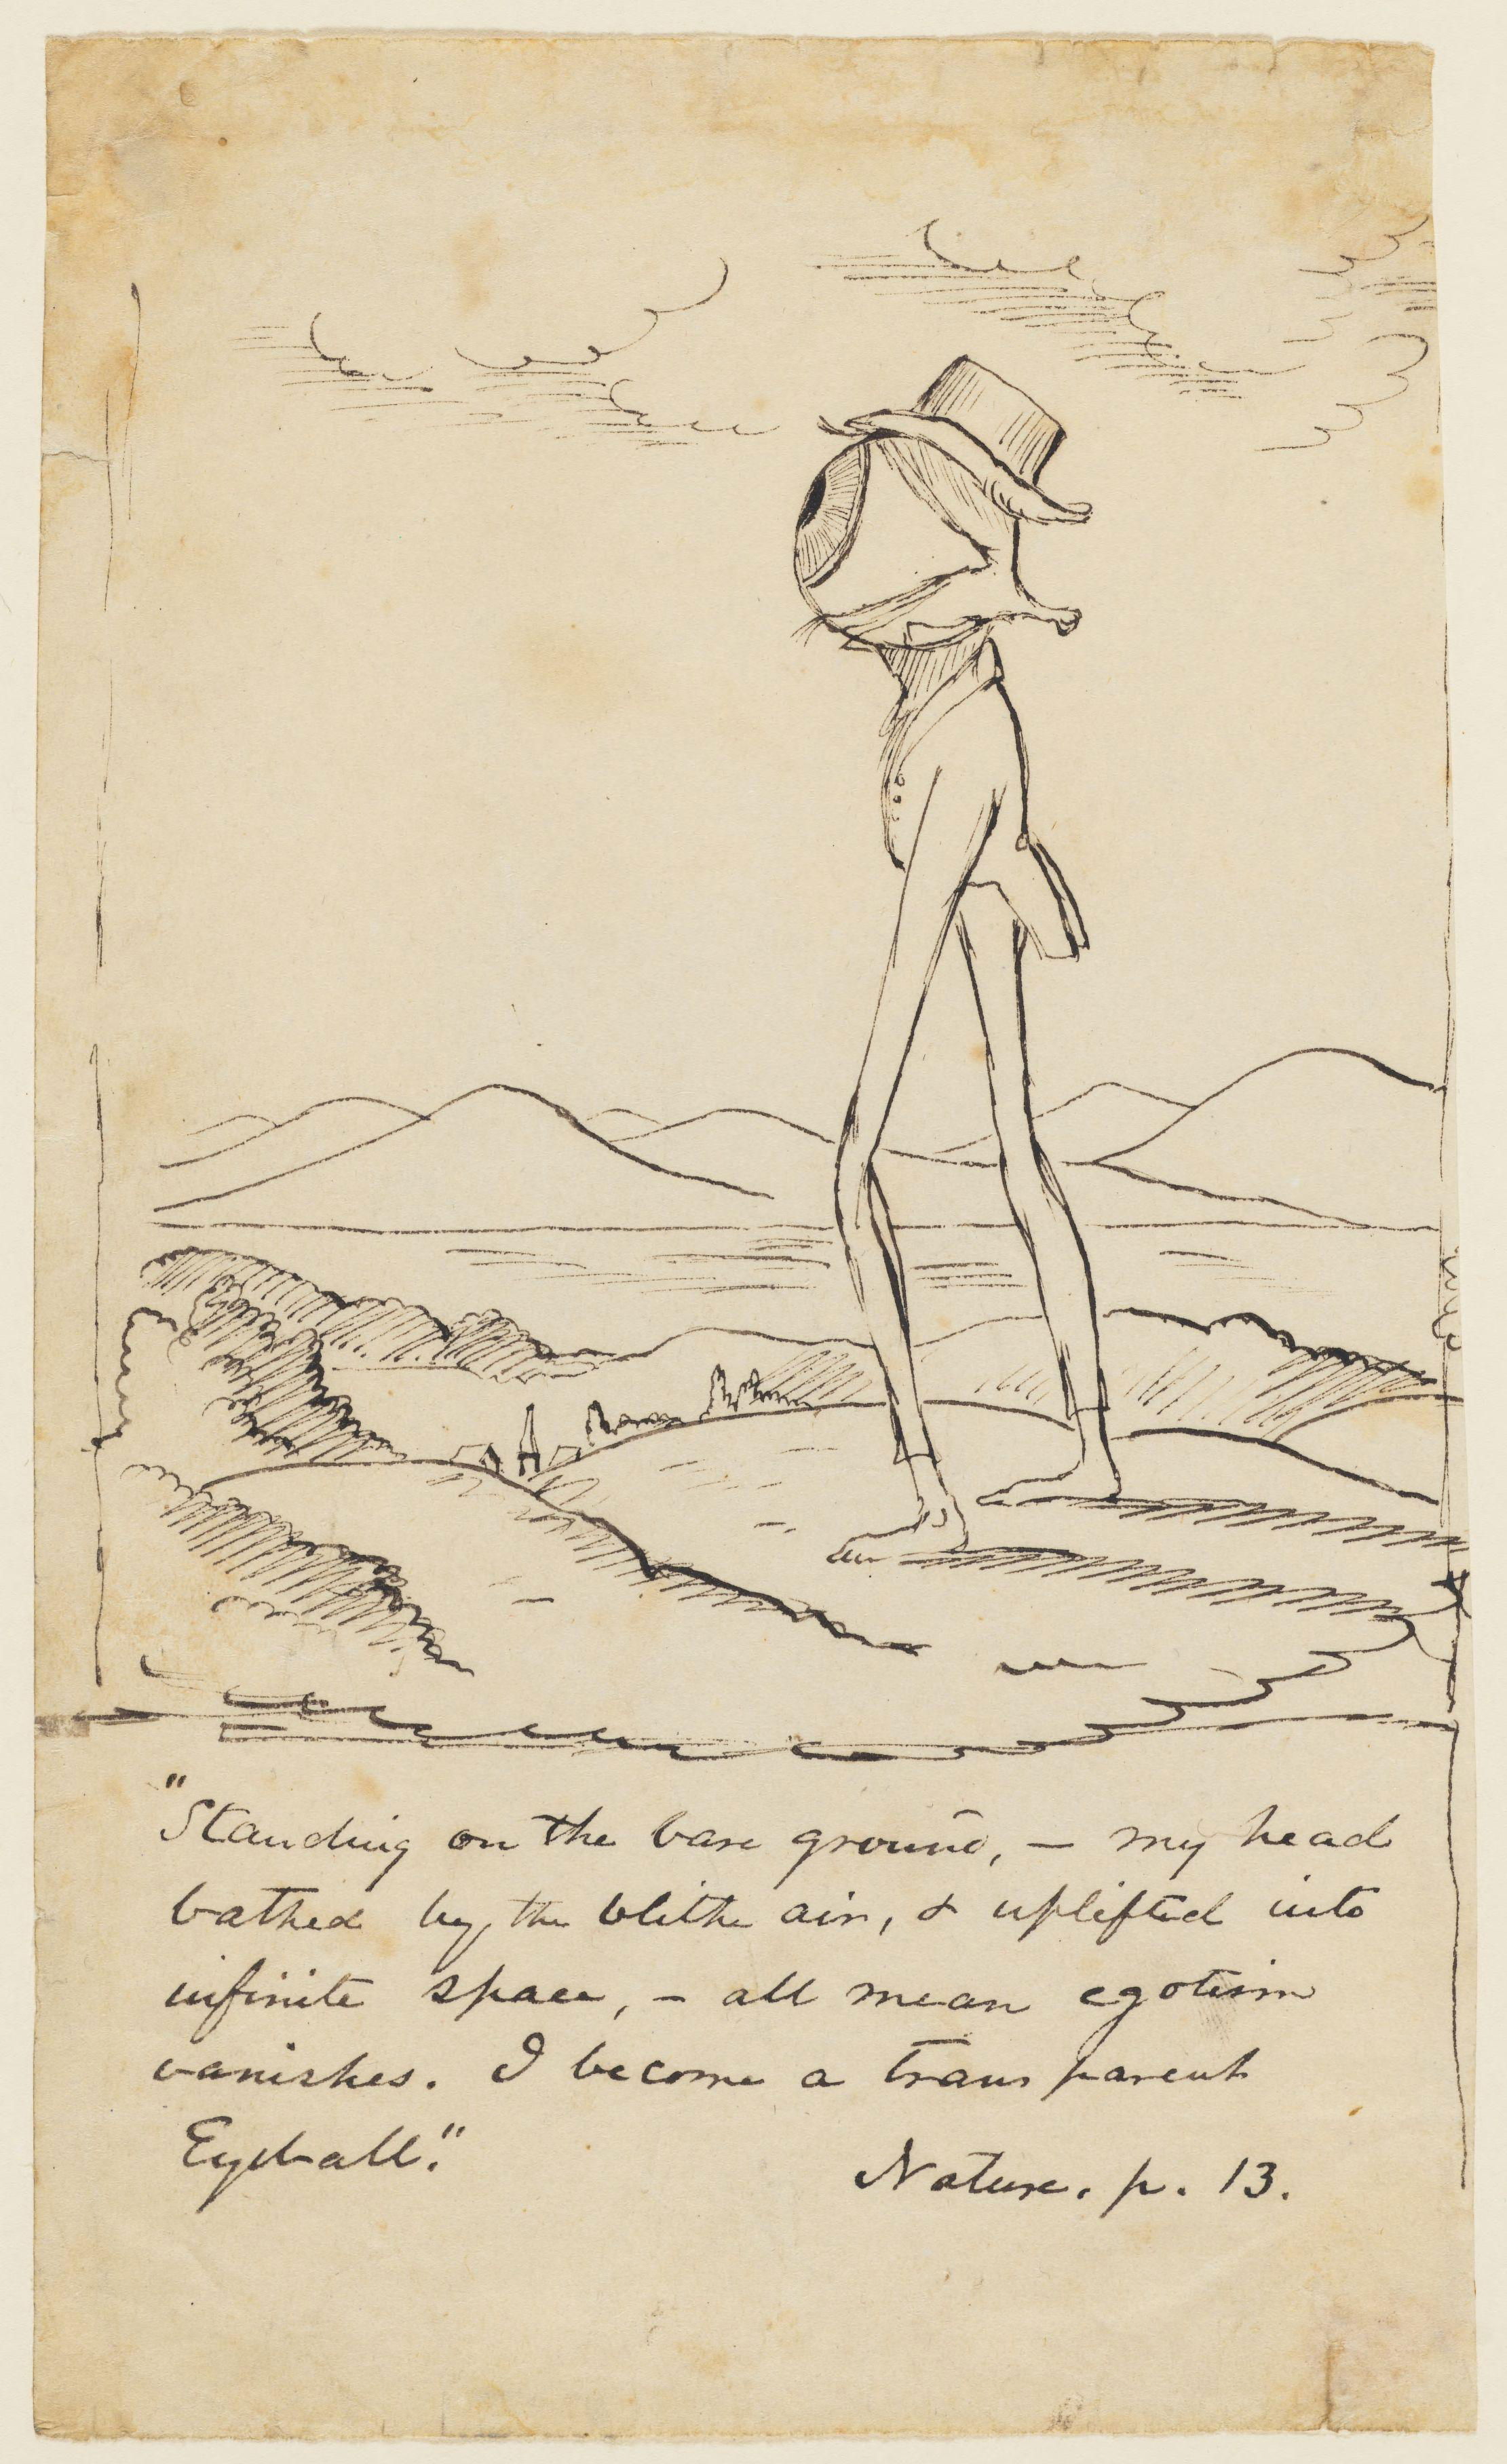 "Standing on the bare ground, — my head
bathed by the blithe air, & uplifted into
infinite space, — all mean egotism
vanishes. I become a transparent
Eyeball."
Nature. p. 13.